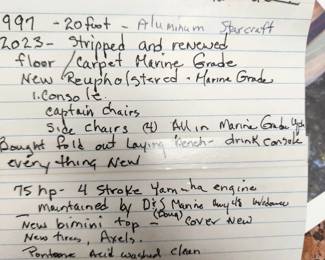 1997 - 20 foot - Aluminum Starcraft
2023 - Stripped and renewed
floor / Carpet Marine Grade
New Reupholstered - Marine Grade
1. Console
captain chairs
side chairs (4) All in Marine Grade
Bought fold out laying bench - drink console
everything New
75 hp - 4 stroke Yamaha engine
maintained by D&S Marine Hwy 48
(Doug)
New bimini top - cover New
New tires, Axels.
Pontoons Acid washed clean